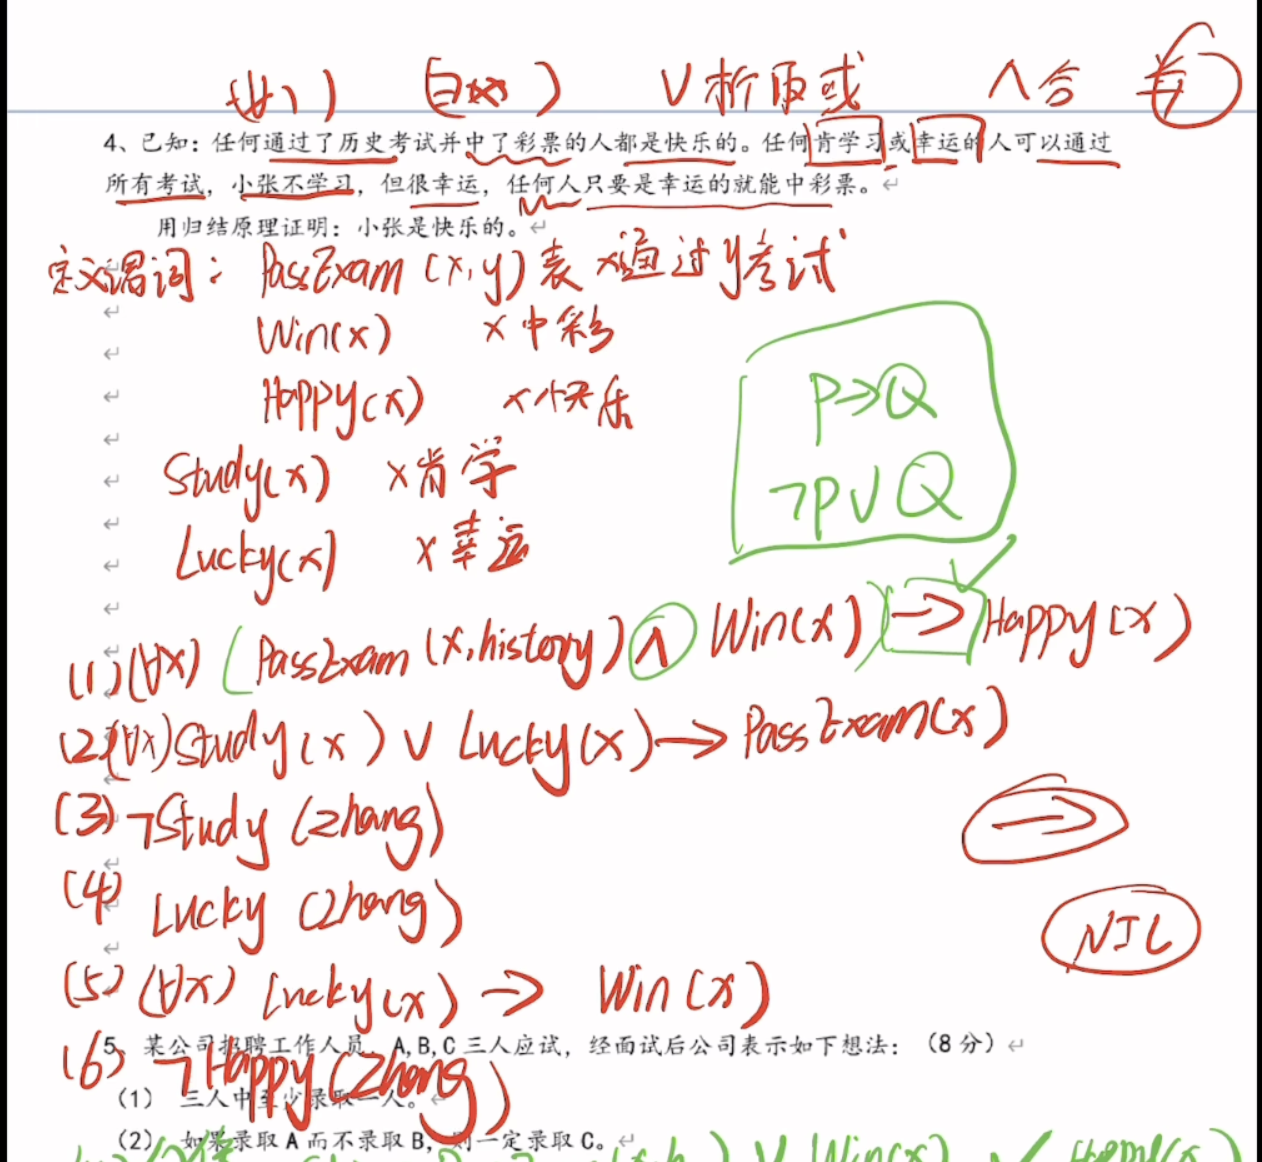 (∀x) (∃x) ∨析取或 ∧合
4、已知：任何通过了历史考试并中了彩票的人都是快乐的。任何肯学习或幸运的人可以通过
所有考试，小张不学习，但很幸运，任何人只要是幸运的就能中彩票。
用归结原理证明：小张是快乐的。
定义谓词： PassExam (x,y)表 x通过y考试
Win(x) x中彩
Happy(x) x快乐
P→Q
Study(x) x肯学
¬P∨Q
Lucky(x) x幸运
(1)(∀x) (PassExam (x,history) ∧ Win(x)) → Happy(x)
(2)(∀x) Study(x) ∨ Lucky(x) → PassExam(x)
(3) ¬Study (zhang)
→
(4) Lucky (zhang)
NIL
(5) (∀x) Lucky(x) → Win(x)
5、某公司招聘工作人员，A,B,C三人应试，经面试后公司表示如下想法：（8分）
(6) ¬Happy(zhang)
（1） 三人中至少录取一人。
（2） 如果录取A而不录取B，则一定录取C。
∨ Win(x) ∨ Happy(x)